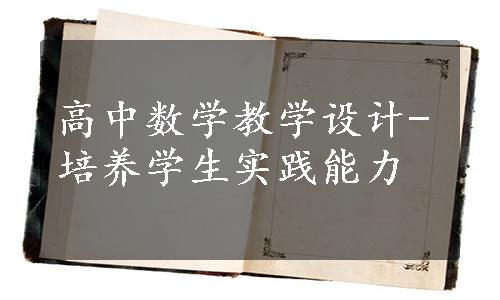 高中数学教学设计-
培养学生实践能力